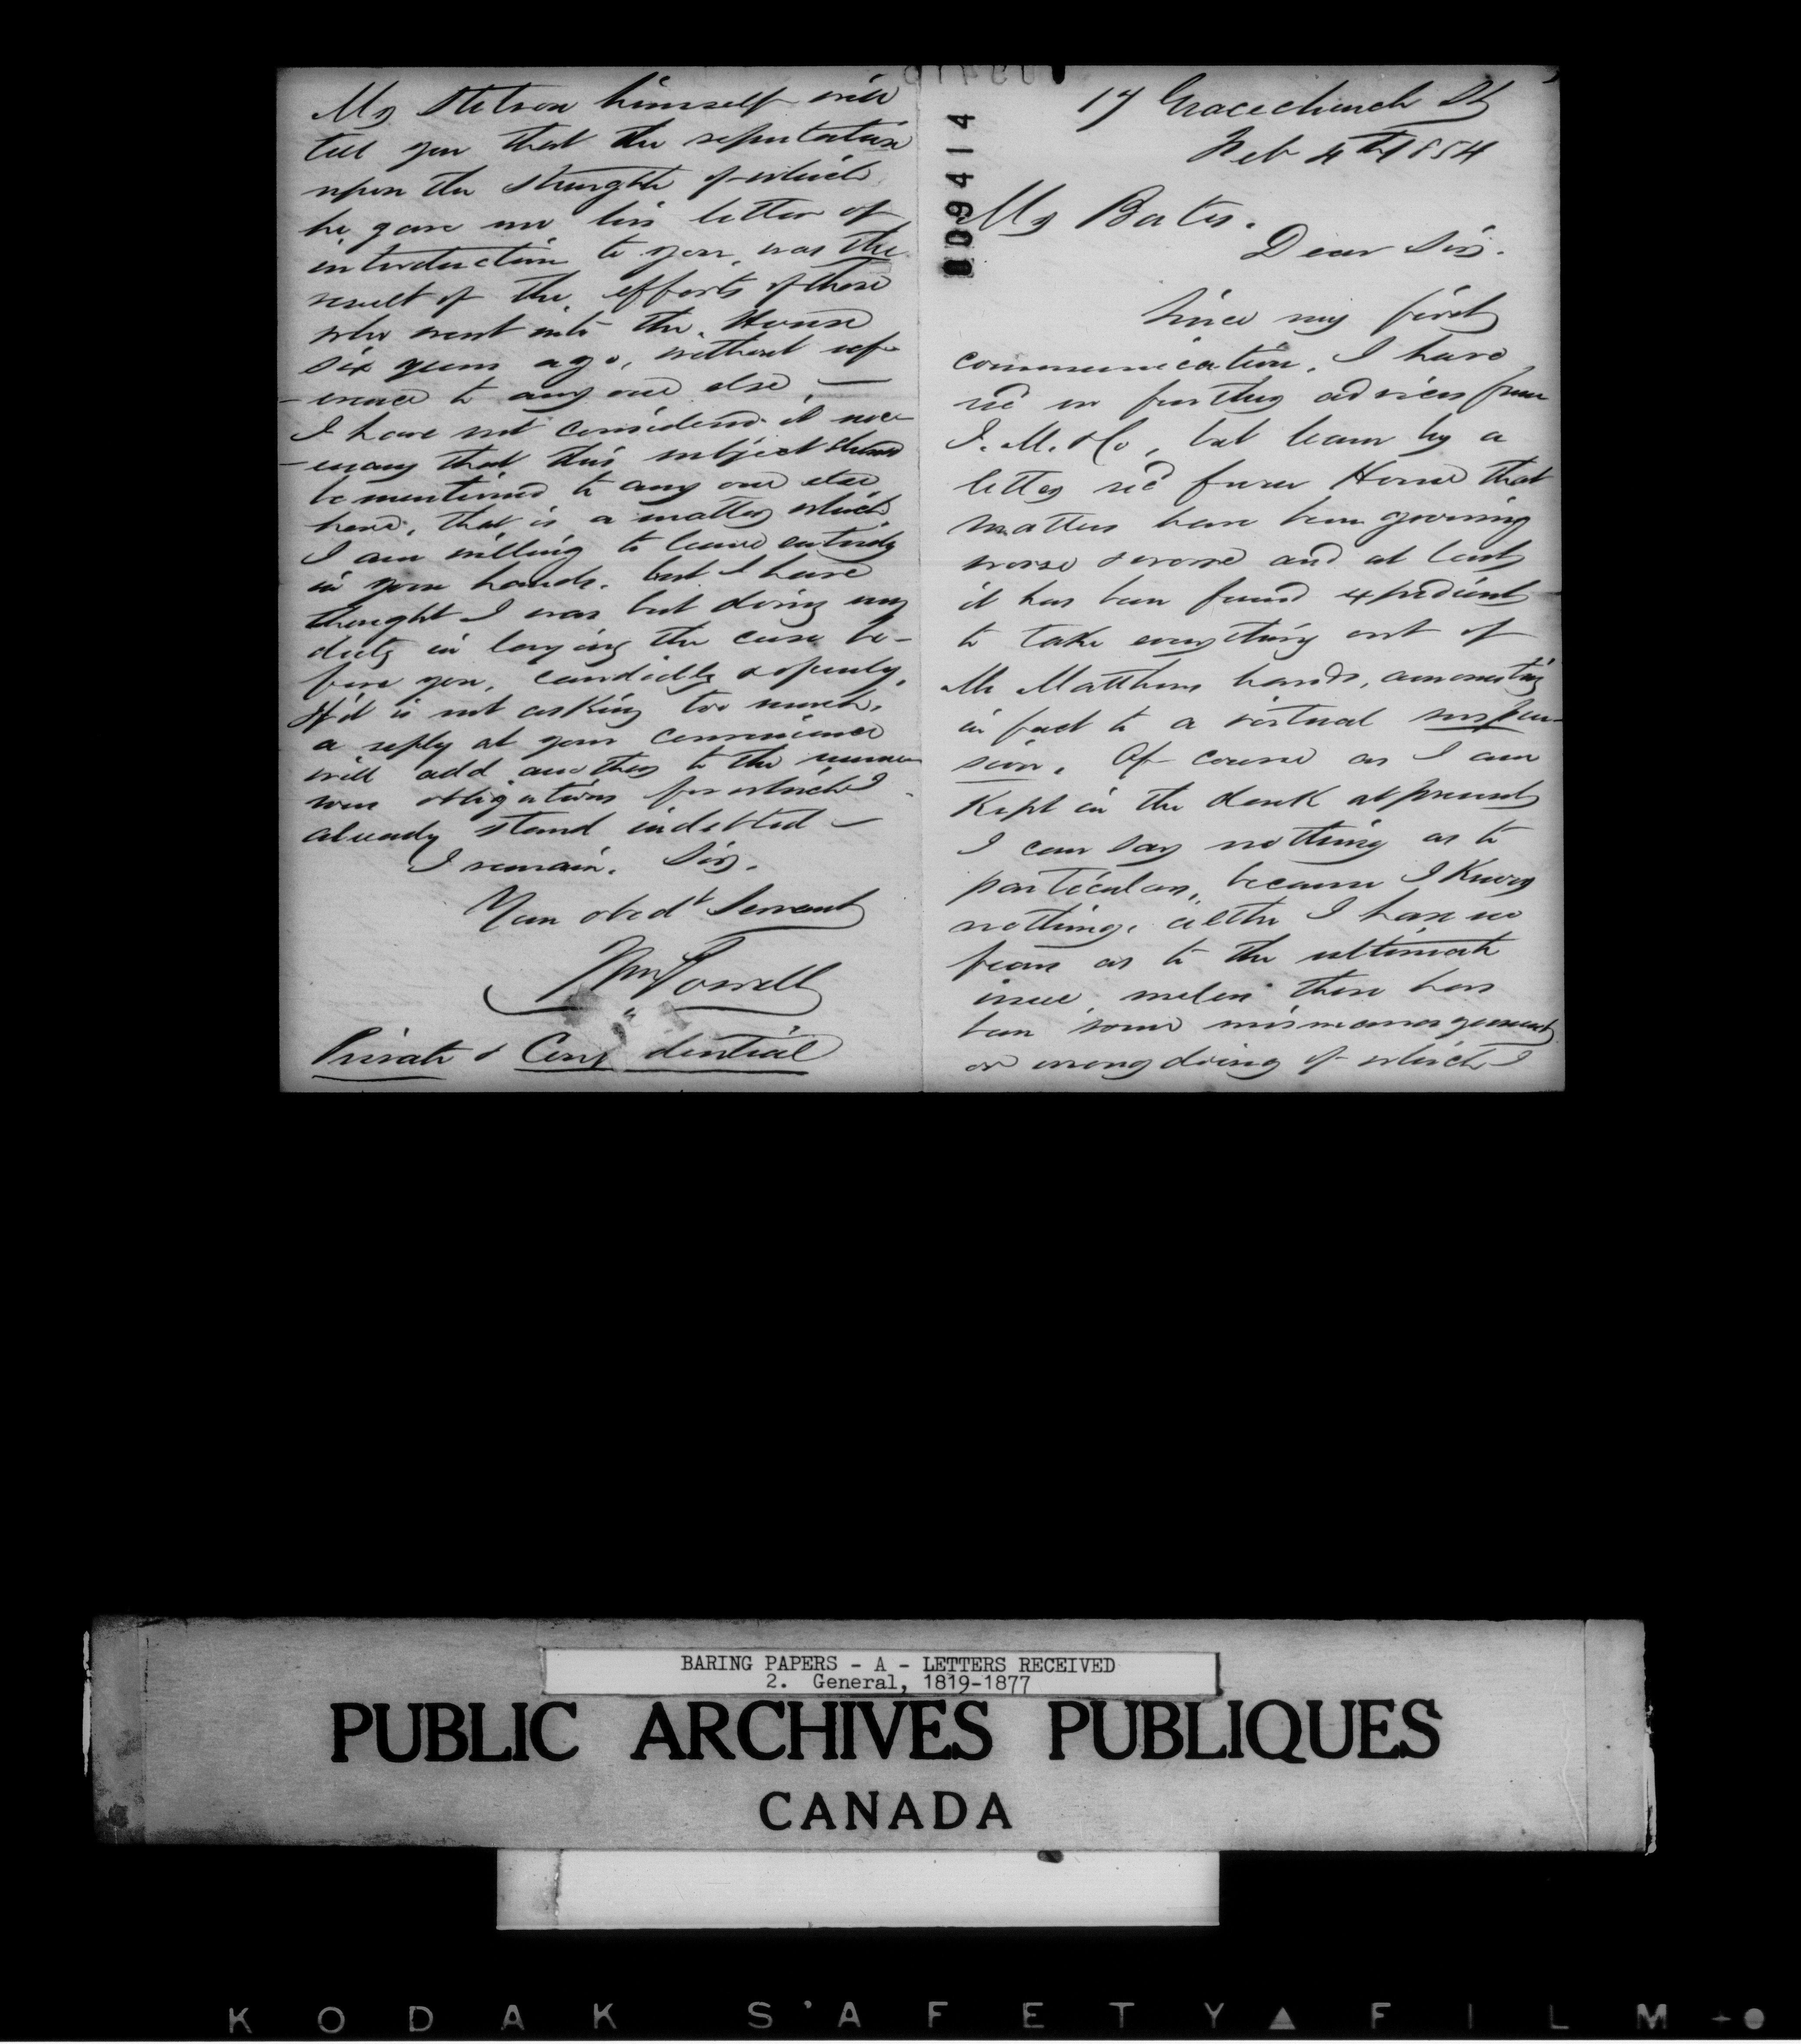 Mr Stetson himself will
tell you that the reputation
upon the strength of which
he gave me his letter of
introduction to you, was the
result of the efforts of those
who went into the House
six years ago, without ref-
-erence to any one else. —
I have not considered it nec-
-essary that this subject should
be mentioned to any one else
here, that is a matter which
I am willing to leave entirely
in your hands. but I have
thought I was but doing my
duty in laying the case be-
fore you, candidly & openly.
If it is not asking too much,
a reply at your convenience
will add another to the nume-
rous obligations for which I
already stand indebted —
I remain. Sir.
Your obedt Servant
Wm Powell
Private & Confidential
17 Gracechurch St
Feb 4th 1854
009414
Mr Bates.
Dear Sir.
Since my first
communication, I have
recd no further advices from
J. M. & Co, but learn by a
letter recd from Home that
matters have been growing
worse & worse and at last
it has been found expedient
to take everything out of
Mr Matthews hands, amounting
in fact to a virtual suspen-
sion. Of course as I am
Kept in the dark at present
I can say nothing as to
particulars, because I Know
nothing, altho I have no
fears as to the ultimate
issue, unless there has
been some mismanagement
or wrong doing of which I
BARING PAPERS - A - LETTERS RECEIVED
2. General, 1819-1877
PUBLIC ARCHIVES PUBLIQUES
CANADA
KODAK S'AFETY FILM